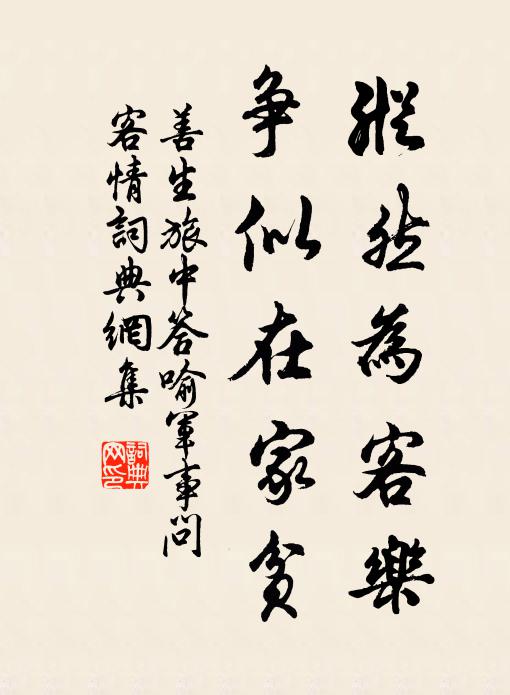 縱然為客樂
争似在家貧
善生旅中答喻軍事問
客情詞典網集
詞典網印